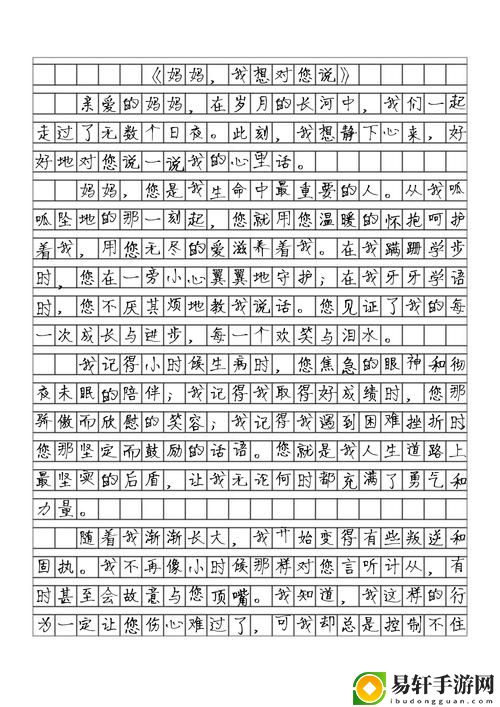 《妈妈，我想对您说》
亲爱的妈妈，在岁月的长河中，我们一起
走过了无数个日夜。此刻，我想静下心来，好
好地对您说一说我的心里话。
妈妈，您是我生命中最重要的人。从我呱
呱坠地的那一刻起，您就用您温暖的怀抱呵护
着我，用您无尽的爱滋养着我。在我蹒跚学步
时，您在一旁小心翼翼地守护；在我牙牙学语
时，您不厌其烦地教我说话。您见证了我的每
一次成长与进步，每一个欢笑与泪水。
我记得小时候生病时，您焦急的眼神和彻
夜未眠的陪伴；我记得我取得好成绩时，您那
骄傲而欣慰的笑容；我记得我遇到困难挫折时
您那坚定而鼓励的话语。您就是我人生道路上
最坚实的后盾，让我无论何时都充满了勇气和
力量。
随着我渐渐长大，我开始变得有些叛逆和
固执。我不再像小时候那样对您言听计从，有
时甚至会故意与您顶嘴。我知道，我这样的行
为一定让您伤心难过了，可我却总是控制不住
易轩手游网
ibudongguan.com